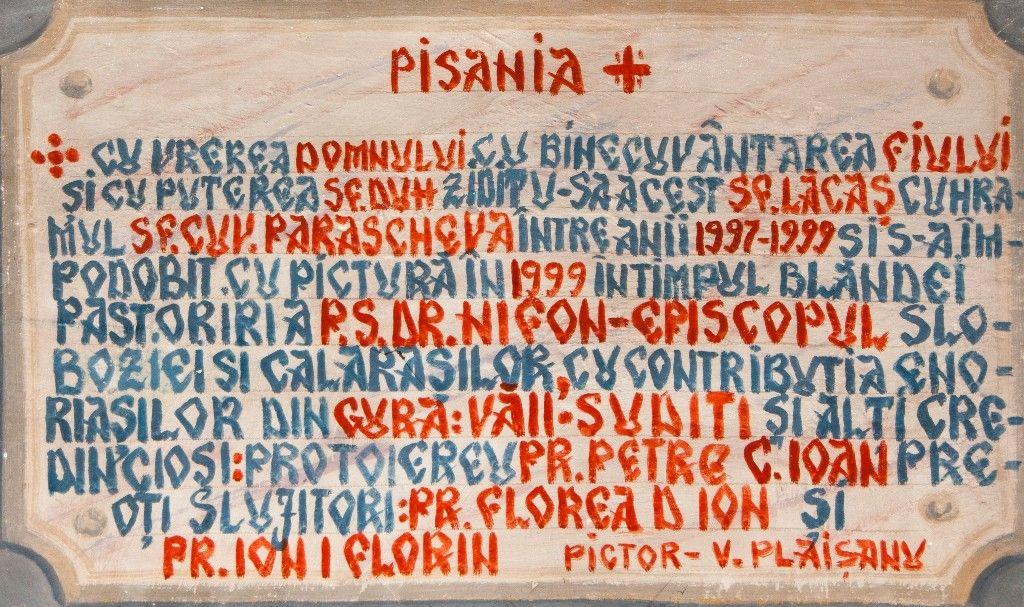 PISANIA +
CU VREREA DOMNULUI, CU BINECUVÂNTAREA FIULUI
SI CU PUTEREA SF. DUH ZIDITU-SA ACEST SF. LĂCAȘ CU HRA-
MUL SF. CUV. PARASCHEVA ÎNTRE ANII 1997-1999 SI S-A ÎM-
PODOBIT CU PICTURĂ ÎN 1999 ÎN TIMPUL BLÂNDEI
PĂSTORIRI A P.S. DR. NIFON-EPISCOPUL SLO-
BOZIEI SI CALARASILOR, CU CONTRIBUTIA ENO-
RIASILOR DIN GURA: VĂII: SUDITI SI ALTI CRE-
DINCIOSI: PROTOIEREU PR. PETRE C. IOAN PRE-
OȚI SLUJITORI: PR. FLOREA D ION ȘI
PR. ION I FLORIN PICTOR - V. PLĂIȘANU